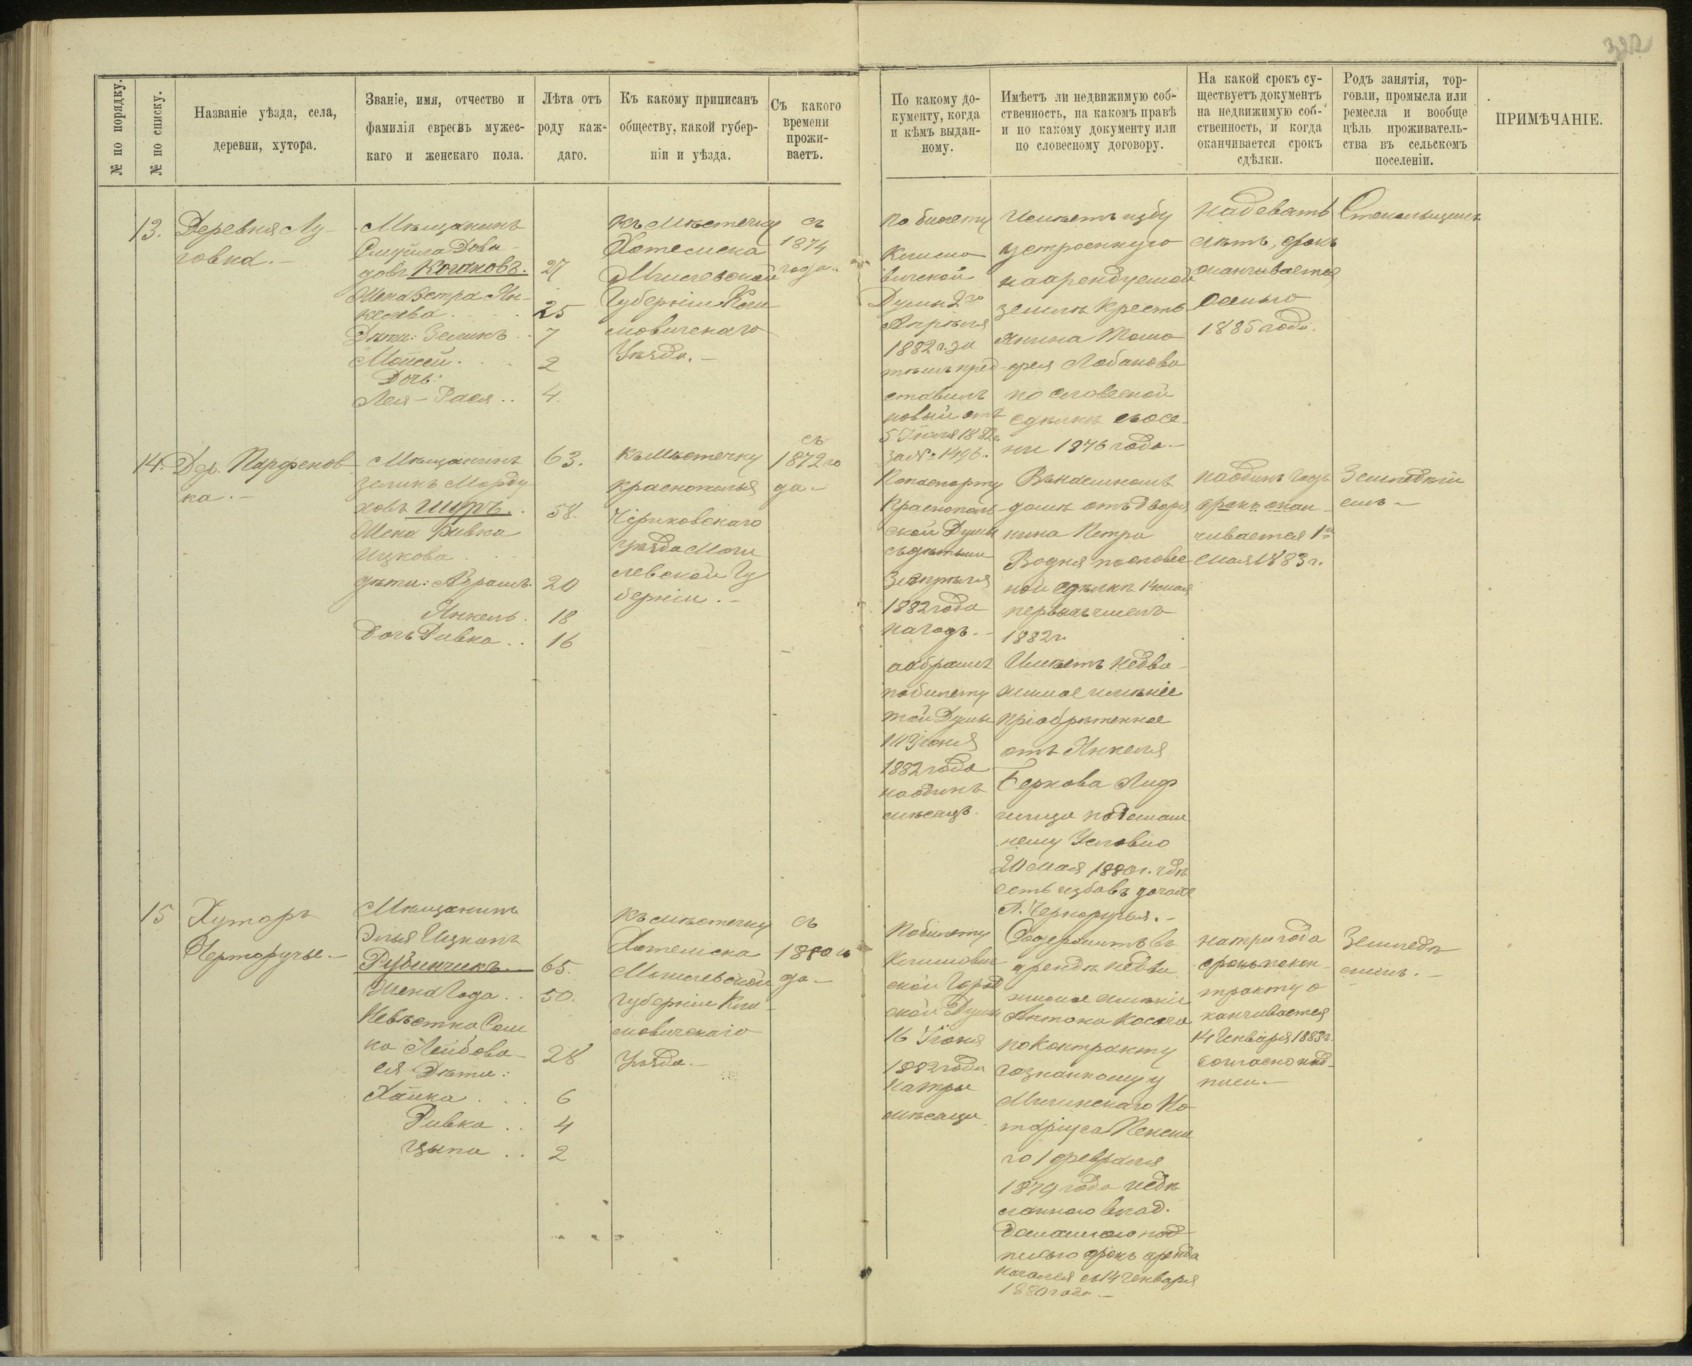 322
№ по порядку.
№ по списку.
Названіе уѣзда, села,
деревни, хутора.
Званіе, имя, отчество и
фамилія евреевъ мужес-
каго и женскаго пола.
Лѣта отъ
роду каж-
даго.
Къ какому приписанъ
обществу, какой губер-
ніи и уѣзда.
Съ какого
времени
прожи-
ваетъ.
По какому до-
кументу, когда
и кѣмъ выдан-
ному.
Имѣетъ ли недвижимую соб-
ственность, на какомъ правѣ
и по какому документу или
по словесному договору.
На какой срокъ су-
ществуетъ документъ
на недвижимую соб-
ственность, и когда
оканчивается срокъ
сдѣлки.
Родъ занятія, тор-
говли, промысла или
ремесла и вообще
цѣль проживатель-
ства въ сельскомъ
поселеніи.
ПРИМѢЧАНІЕ.
13.
Деревня Лу-
говка.
Мѣщанинъ
Дови-
довъ Кочановъ.
Жена Эстра Ян-
келева
Дѣти: Зеликъ
Мойсей
Дочь:
Лея-Рася
27
25
7
2
4
Къ мѣстечку
Хотемска
Могилевской
Губерніи Кли-
мовичскаго
Уѣзда.
съ
1874
года
По билету
Климо-
вичской
Думы 2го
Апрѣля
1882 г. за
тѣмъ пред-
ставилъ
новый отъ
5 Іюля 1882 г.
за № 1496.
Имѣетъ избу
устроенную
на арендуемой
землѣ Кресть-
янина Тимо-
фея Лобанова
по словесной
сдѣлкѣ съ осе-
ни 1876 года.
на девять
лѣтъ, срокъ
оканчивается
осенью
1885 года.
Стекольщикъ
14.
Дер. Парфенов-
ка.
Мѣщанинъ
Зеликъ Морду-
ховъ Шуръ
Жена Ривка
Ицкова
дѣти: Абрамъ
Янкель
Дочь Ривка
63.
58.
20
18
16
Къ мѣстечку
Краснополья
Чериковскаго
уѣзда Моги-
левской Гу-
берніи.
съ
1872 го-
да
По паспорту
Краснополь-
ской Думы
съ дѣтьми
3 апрѣля
1882 года
на годъ.
а Абрамъ
по билету
той Думы
14 Іюня
1882 года
на одинъ
мѣсяцъ.
Въ наемномъ
домѣ отъ дворя-
нина Петра
Водня по словес-
ной сдѣлкѣ 1 мая
первымъ числъ
1882 г.
Имѣетъ недви-
жимое имѣніе
пріобрѣтенное
отъ Янкеля
Беркова Лиф-
шица по домаш-
нему Условію
20 мая 1880 г. гдѣ
есть изба въ дачахъ
Д. Черноручья.
на одинъ годъ
срокъ окан-
чивается 1го
мая 1883 г.
Земледѣлі-
емъ
15
Хуторъ
Черторучье.
Мѣщанинъ
Элья Ицковъ
Рубинчикъ
Жена Года
Невѣстка Сем-
ка Лейбова
ея Дѣти:
Хайка
Ривка
Цыпа
65.
50.
28
6
4
2
Къ мѣстечку
Хотемска
Могилевской
губерніи Кли-
мовичскаго
Уѣзда.
съ
1880 го-
да
По билету
Климович-
ской Город-
ской Думы
16 Іюня
1882 года
на три
мѣсяца
Содержитъ въ
арендѣ недви-
жимое имѣніе
Антона Косача
по контракту
сознанному у
Мглинскаго Но-
таріуса
го 1 февраля
1879 года
сданного влад.
под-
писью срокъ аренды
начался съ 14 Генваря
1880 года.
на три года
срокъ по кон-
тракту о-
канчивается
14 Генваря 1883 г.
согласно над-
писи.
Земледѣ-
ліемъ.